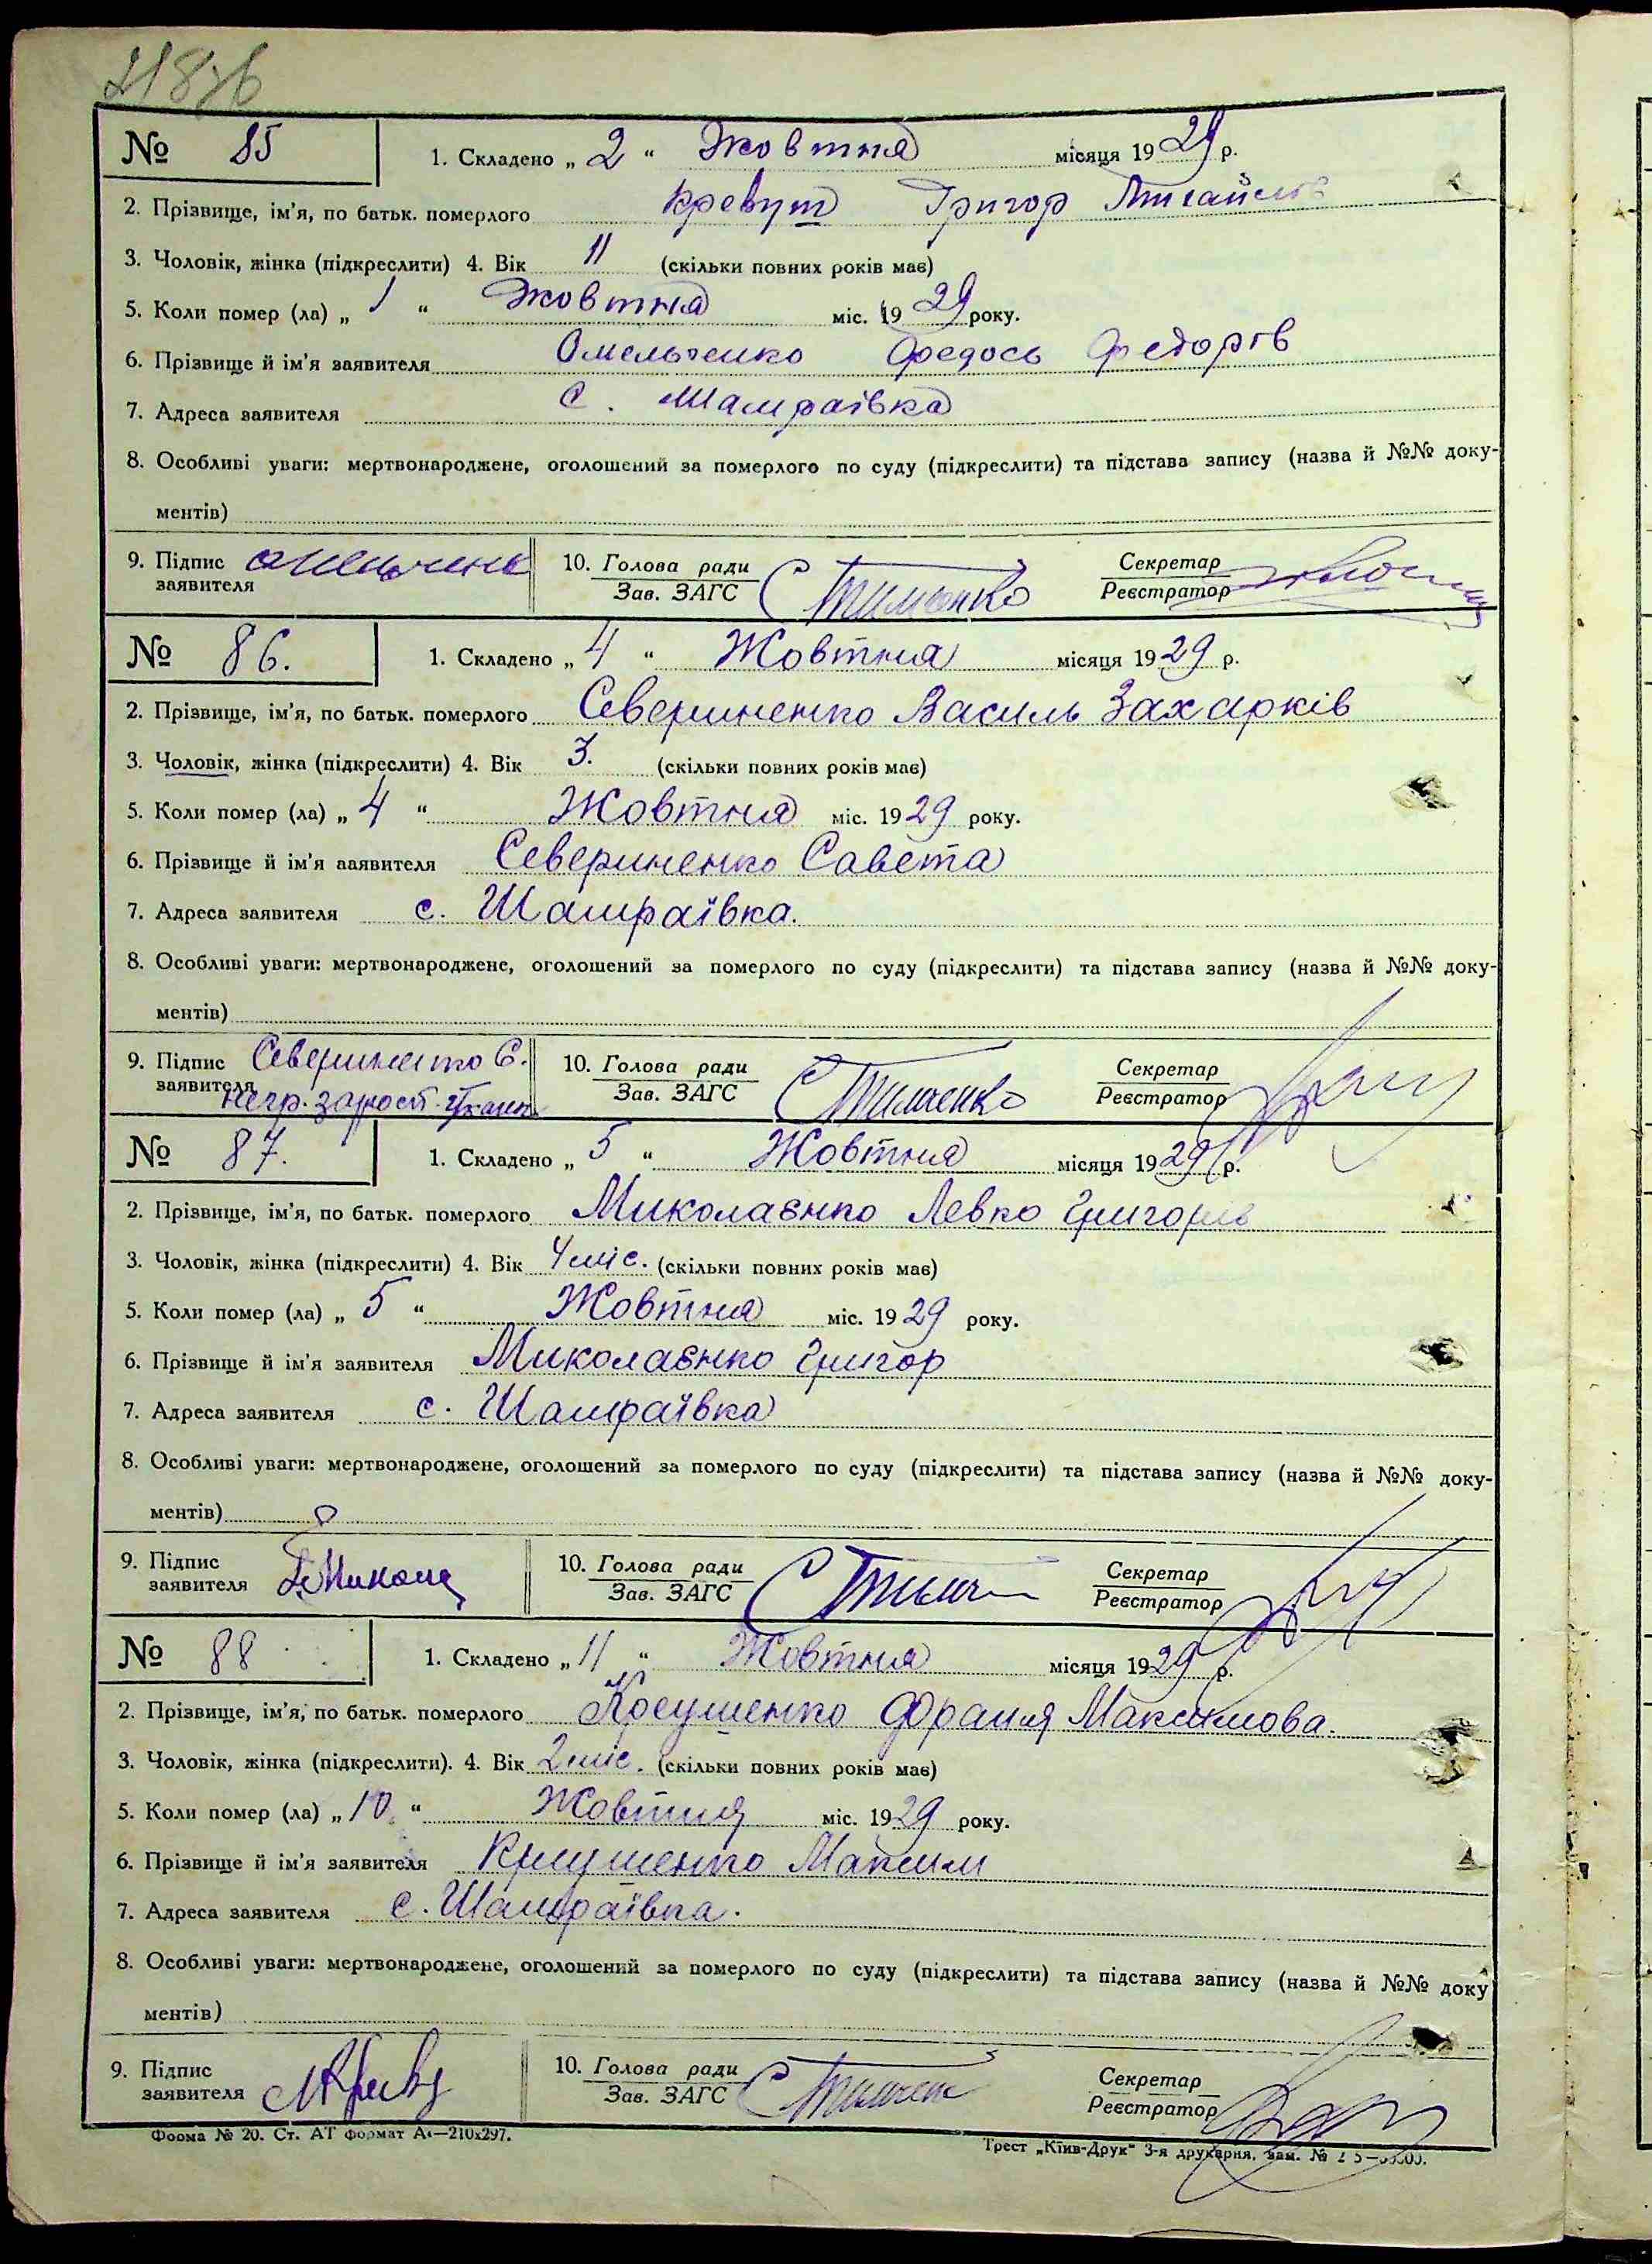 № 85 1. Складено „ 2 “ Жовтня місяця 1929 р.
2. Прізвище, ім'я, по батьк. померлого Кревут Григор
3. Чоловік, жінка (підкреслити) 4. Вік 11 (скільки повних років має)
5. Коли помер (ла) „ 1 “ Жовтня міс. 1929 року.
6. Прізвище й ім'я заявителя Омельченко Федось Федорів
7. Адреса заявителя с. Шамраївка
8. Особливі уваги: мертвонароджене, оголошений за померлого по суду (підкреслити) та підстава запису (назва й №№ доку-
ментів)
9. Підпис 10. Голова ради Секретар
заявителя Зав. ЗАГС Реєстратор
№ 86. 1. Складено „ 4 “ Жовтня місяця 1929 р.
2. Прізвище, ім'я, по батьк. померлого Севериненко Василь Захарків
3. Чоловік, жінка (підкреслити) 4. Вік 3. (скільки повних років має)
5. Коли помер (ла) „ 4 “ Жовтня міс. 1929 року.
6. Прізвище й ім'я ааявителя Севериненко Савета
7. Адреса заявителя с. Шамраївка.
8. Особливі уваги: мертвонароджене, оголошений за померлого по суду (підкреслити) та підстава запису (назва й №№ доку-
ментів)
9. Підпис Севериненко С. 10. Голова ради Секретар
заявителя Зав. ЗАГС Реєстратор
№ 87. 1. Складено „ 5 “ Жовтня місяця 1929 р.
2. Прізвище, ім'я, по батьк. померлого Миколаєнко Левко Григорів
3. Чоловік, жінка (підкреслити) 4. Вік 4 міс. (скільки повних років має)
5. Коли помер (ла) „ 5 “ Жовтня міс. 1929 року.
6. Прізвище й ім'я заявителя Миколаєнко Григор
7. Адреса заявителя с. Шамраївка
8. Особливі уваги: мертвонароджене, оголошений за померлого по суду (підкреслити) та підстава запису (назва й №№ доку-
ментів)
9. Підпис 10. Голова ради Секретар
заявителя Зав. ЗАГС Реєстратор
№ 88 1. Складено „ 11 “ Жовтня місяця 1929 р.
2. Прізвище, ім'я, по батьк. померлого Максимова.
3. Чоловік, жінка (підкреслити). 4. Вік 2 міс. (скільки повних років має)
5. Коли помер (ла) „ 10 “ Жовтня міс. 1929 року.
6. Прізвище й ім'я заявителя Максим
7. Адреса заявителя с. Шамраївка.
8. Особливі уваги: мертвонароджене, оголошений за померлого по суду (підкреслити) та підстава запису (назва й №№ доку
ментів)
9. Підпис 10. Голова ради Секретар
заявителя Зав. ЗАГС Реєстратор
Форма № 20. Ст. АТ формат А₄—210x297.
Трест „Київ-Друк“ 3-я друкарня, зам. №